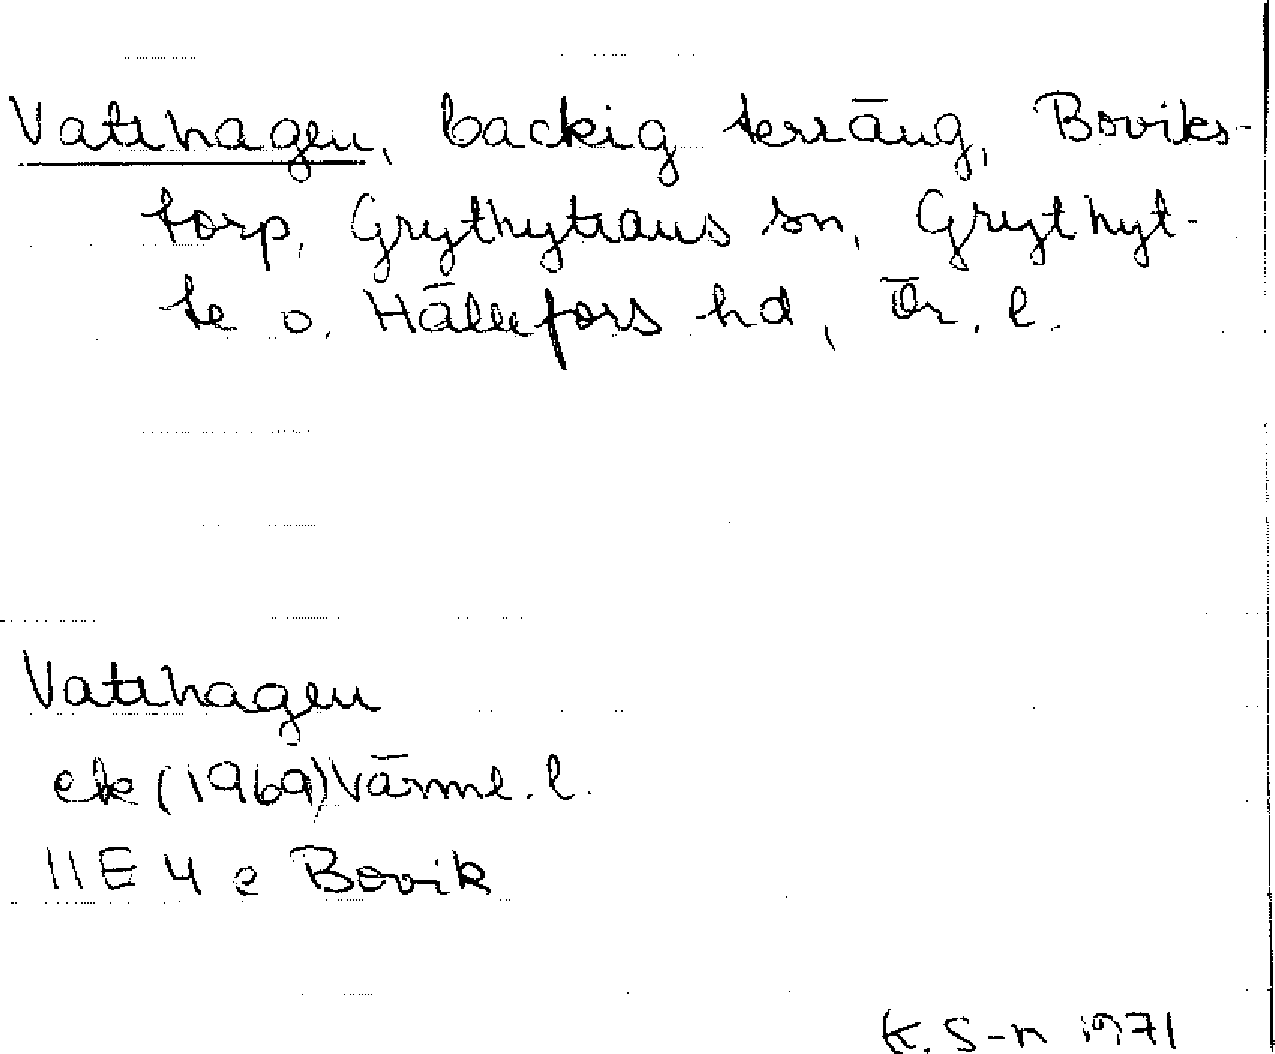 Vatthagen, backig terräng, Boviks-
torp, Grythyttans sn, Grythyt-
te o. Hällefors hd, Ör. l.
Vatthagen
ek (1969) Värml. l.
11E 4 e Bovik
K. S-n 1971